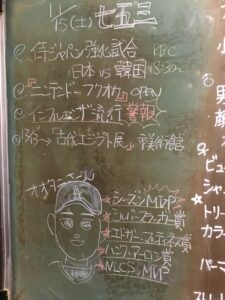 11/15(土) 七五三
@侍ジャパン強化試合
日本 vs 韓国
@ニンテンドーフクオカ OPEN
@インフルエンザ流行 警報
「古代エジプト展」
美術館
オオタニさーん
★シーズンMVP
★シルバースラッガー賞
★エドガー・マルティネス賞
★ハンク・アーロン賞
★NLCS MVP
男
顔
ビュー
シャ
トリー
カラ
パーマ